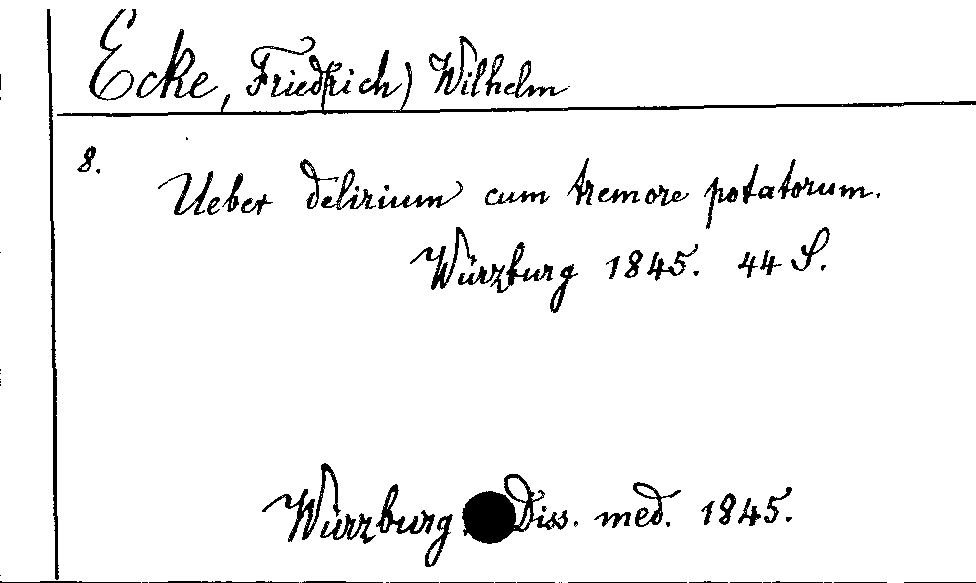 Ecke, Friedrich) Wilhelm
8.
Ueber delirium cum tremore potatorum.
Würzburg 1845. 44 S.
Würzburg. Diss. med. 1845.